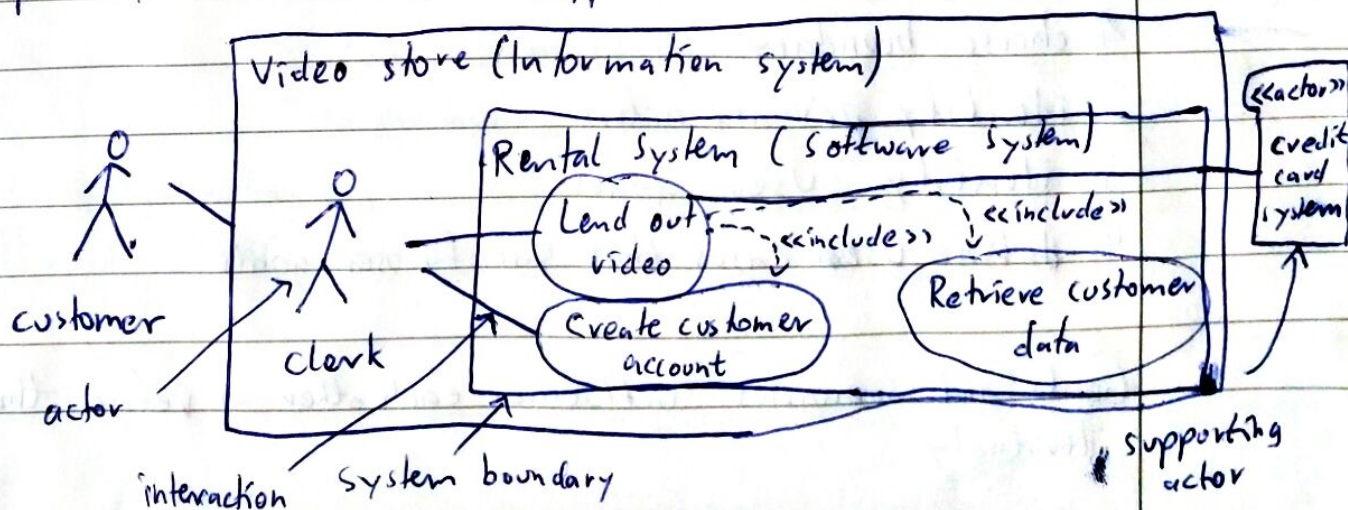 Video store (Information system)
<<actor>>
credit
card
system
Rental system (software system)
Lend out
video
<<include>>
<<include>>
Retrieve customer
data
Create customer
account
customer
Clerk
actor
interaction
system boundary
supporting
actor